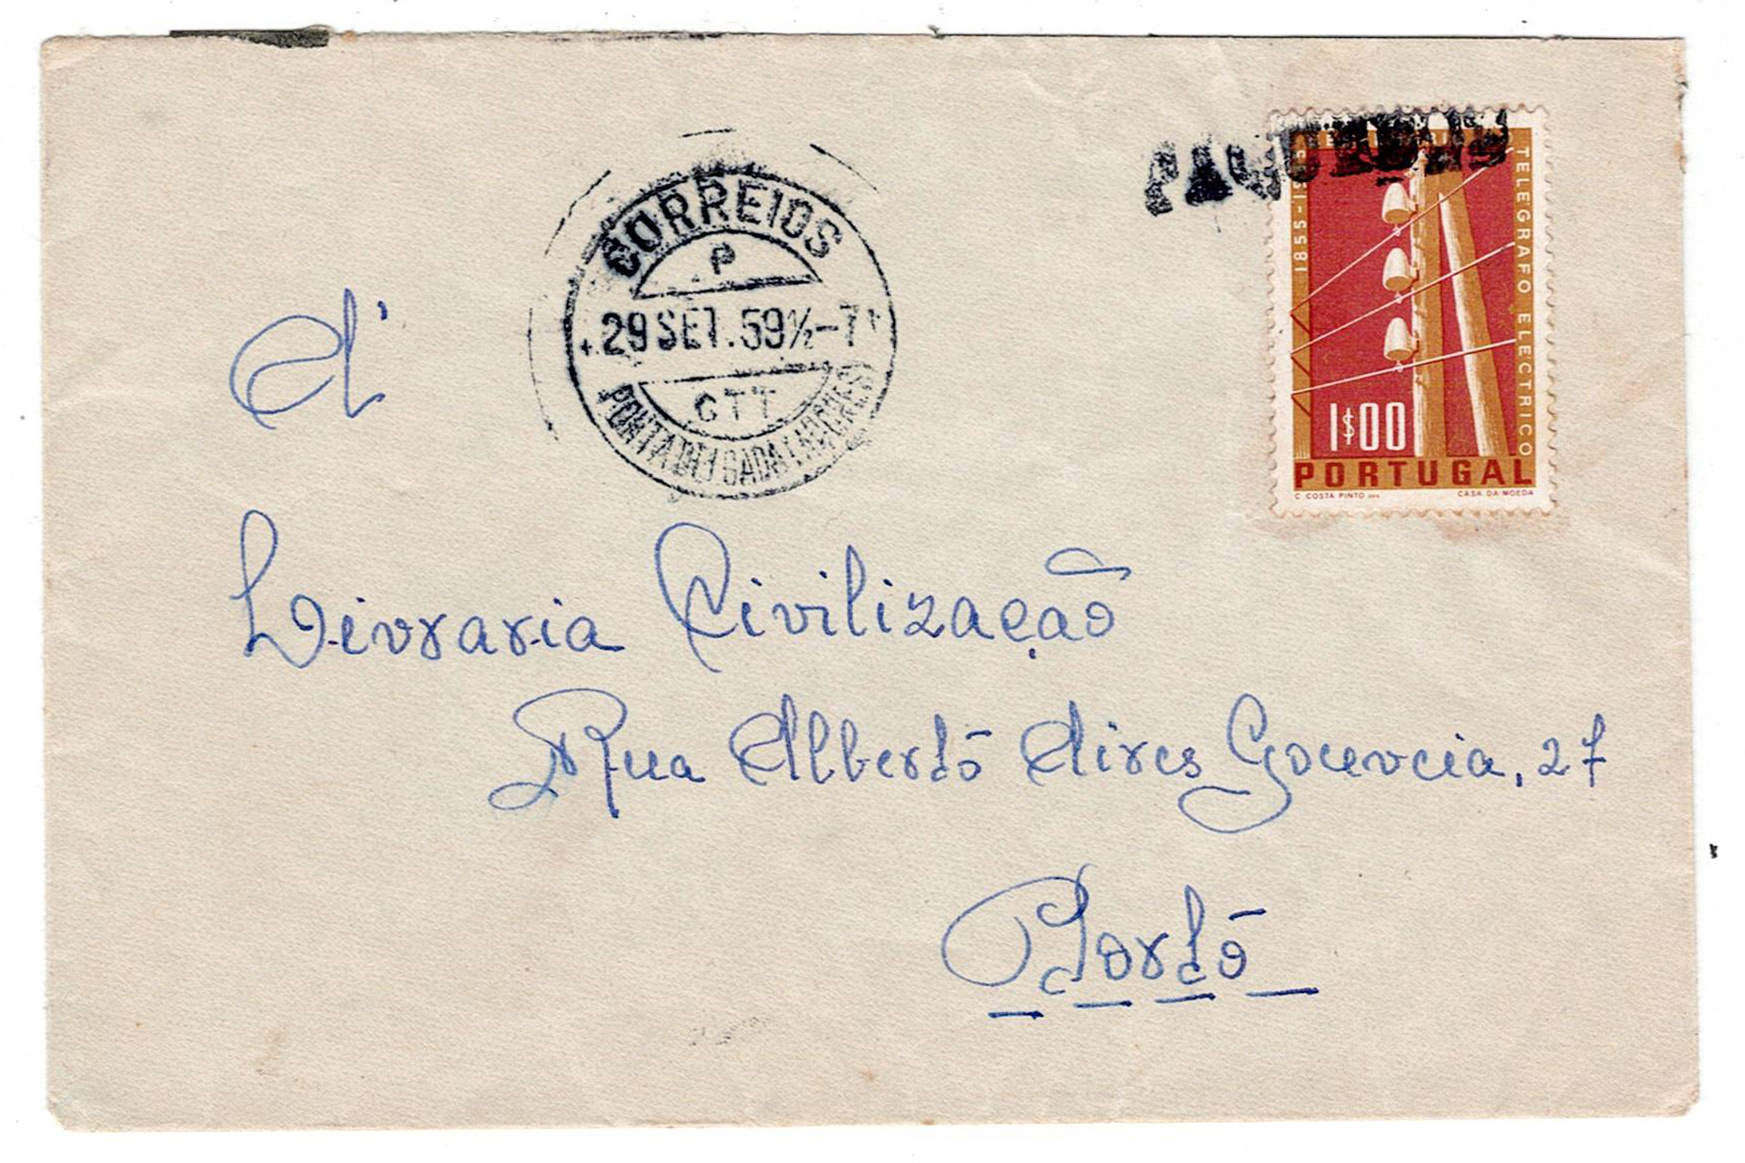 PAQUEBOT
CORREIOS
P
29 SET. 59 ½-7
CTT
PONTA DELGADA (AÇORES)
1855-1955
TELEGRAFO ELECTRICO
1$00
PORTUGAL
C. COSTA PINTO DES.
CASA DA MOEDA
À
Livraria Civilização
Rua Alberto Aires Gouveia, 27
Porto